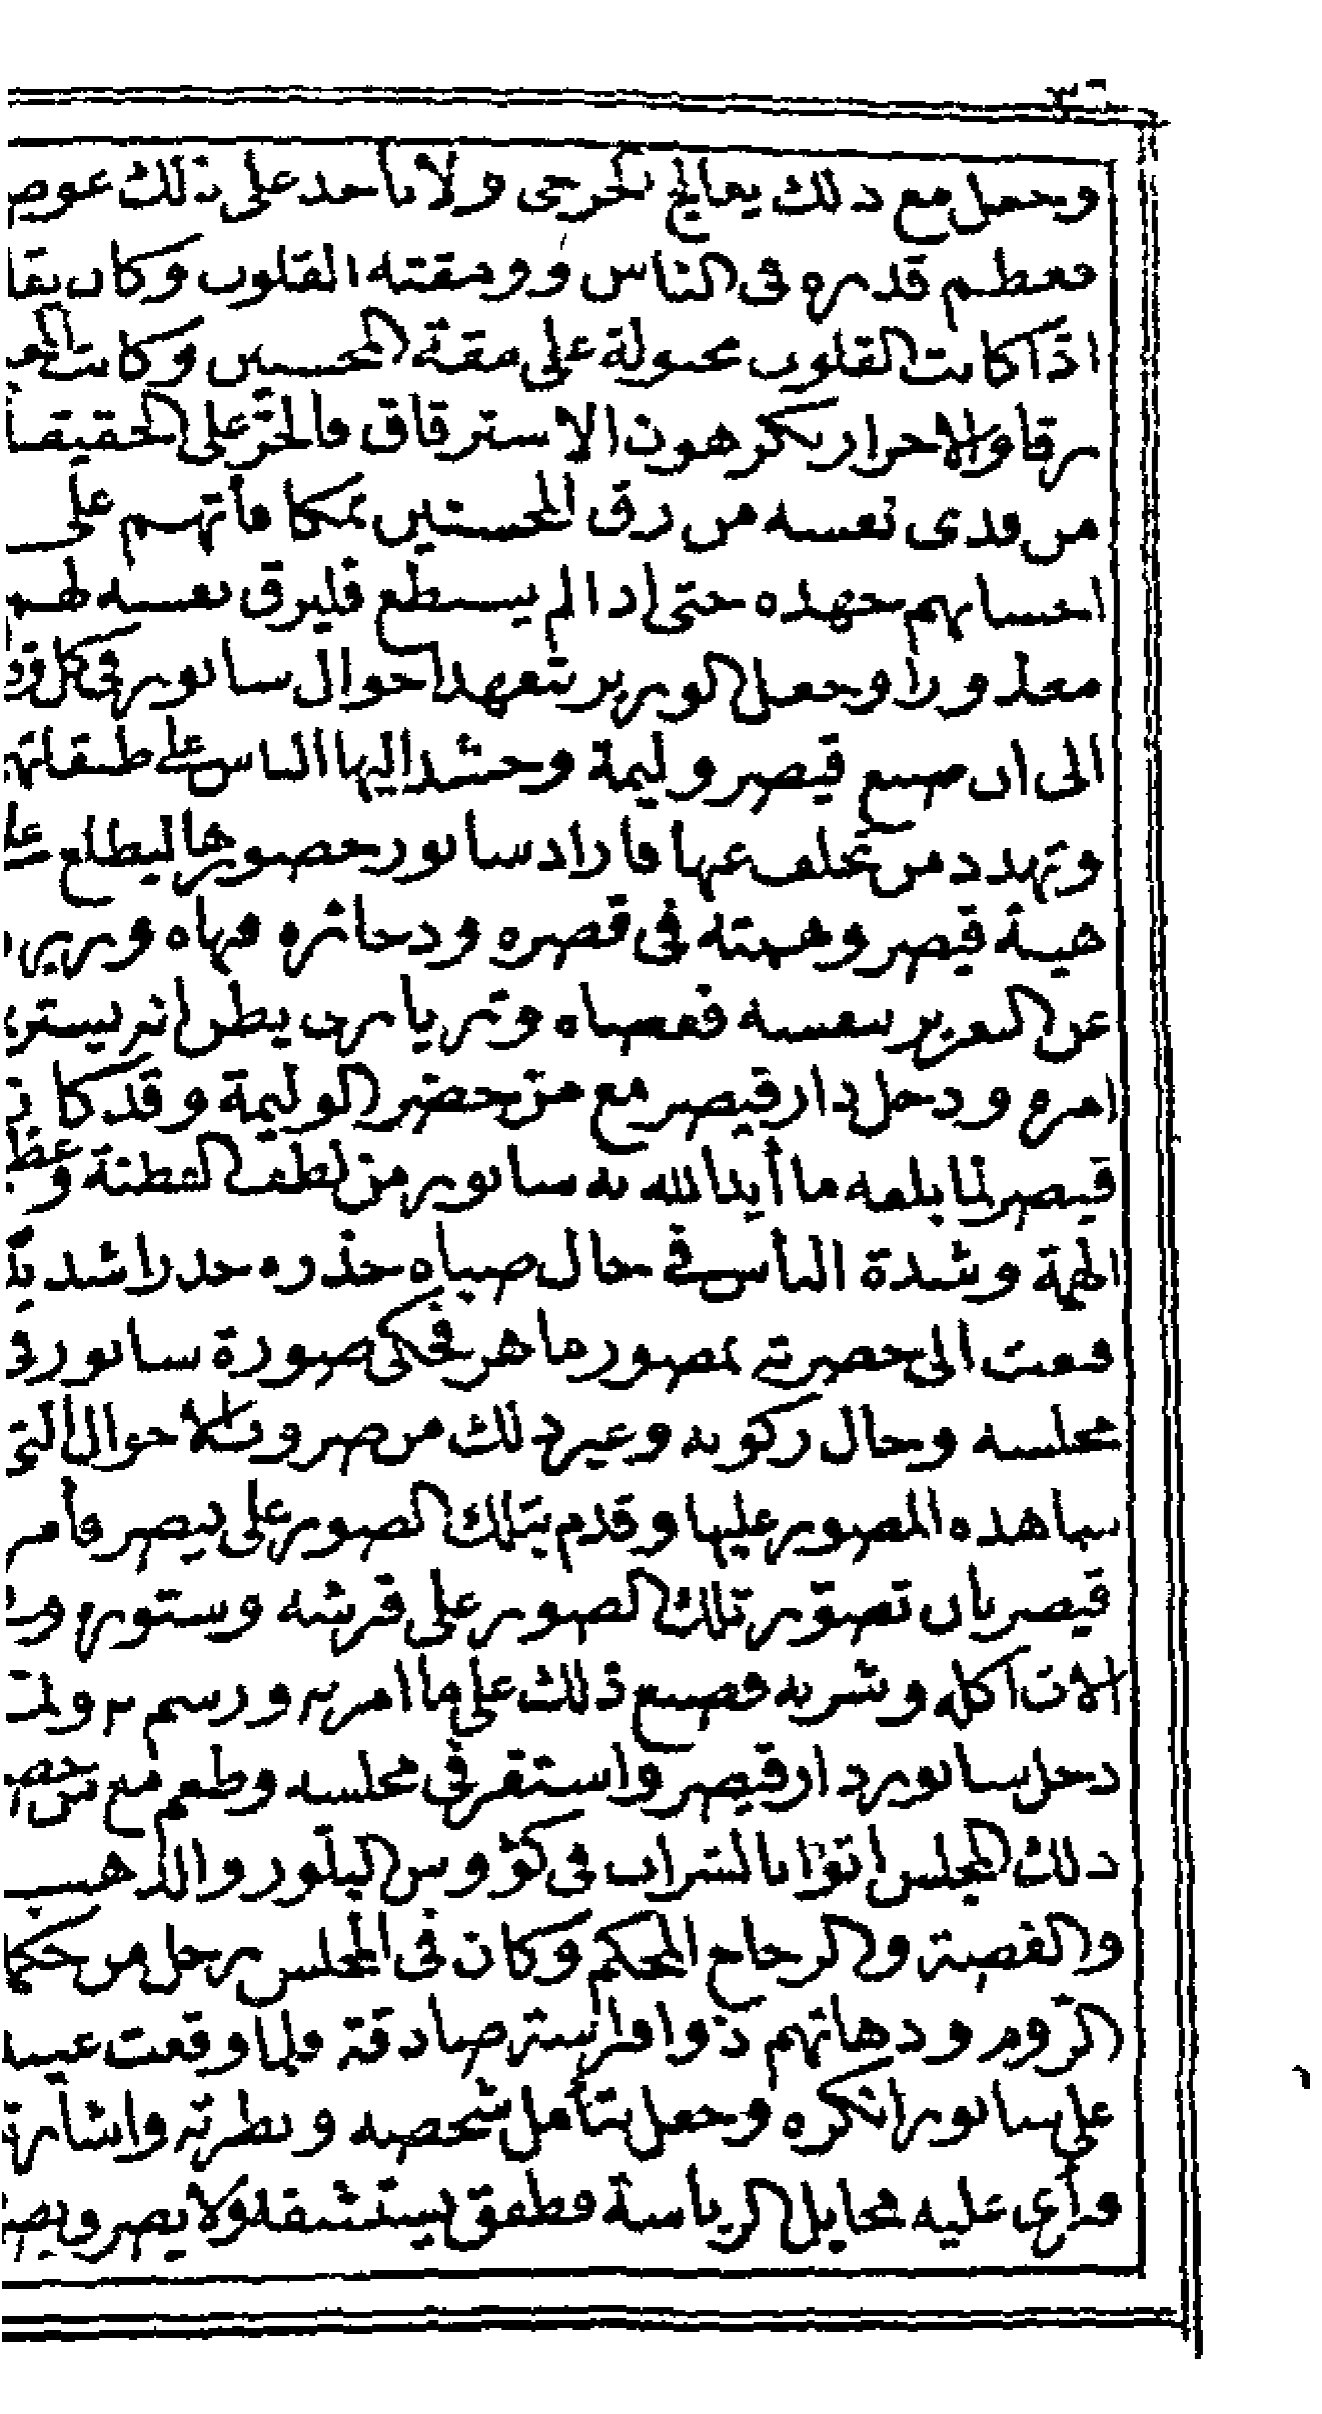 ٣٦
وجعل مع ذلك يعالج الجرحى ولا ياخذ على ذلك عوض
فعظم قدره فى الناس وومقته القلوب وكان يقا
اذا كانت القلوب مجبولة على مقة المحسنين وكانت
رقا والاحرار يكرهون الاسترقاق فالحرّ على الحقيقـ
من فدى نفسه من رق المحسنين بمكافأتهم على
احسانهم جهده حتى اذا لم يستطع فليرق نفسه لهم
معذورا وجعل الوزير يتعهد احوال سابور فى كل وقـ
الى ان صنع قيصر وليمة وحشد اليها الناس على طبقاتهـ
وتهدد من تخلف عنها فاراد سابور حضورها ليطلع على
هيئة قيصر وهمته فى قصره وذخائره فنهاه وزيره
عن التعزير بنفسه فعصاه وتزيا بزى يظن انه يستر
امره ودخل دار قيصر مع من حضر الوليمة وقد كا
قيصر لمّا بلغه ما أيد الله به سابور من لطف الفطنة وعظ
الهمة وشدة البأس فى حال صباه حذره حذرا شديدًا
فبعث الى حضرته بمصور ماهر فحكى صورة سابور فى
مجلسه وحال ركوبه وغير ذلك من ضروب الاحوال التى
شاهده المصور عليها وقدم بتلك الصور على قيصر فأمر
قيصر بان تصوّر تلك الصور على فرشه وستوره و
الات اكله وشربه فصنع ذلك على ما امر به ورسم به ولمّـ
دخل سابور دار قيصر واستقر فى مجلسه وطعم مع من حضر
ذلك المجلس اتوا بالشراب فى كؤوس البلّور والذهب
والفضة والزجاج المحكم وكان فى المجلس رجل من حكما
الرّوم ودهاتهم ذوا فراسة صادقة فلما وقعت عينـ
على سابور انكره وجعل يتأمل شخصه ونظرته واشارته
فرأى عليه مخايل الرياسة فطفق يستشفه ولا يصر وبصر